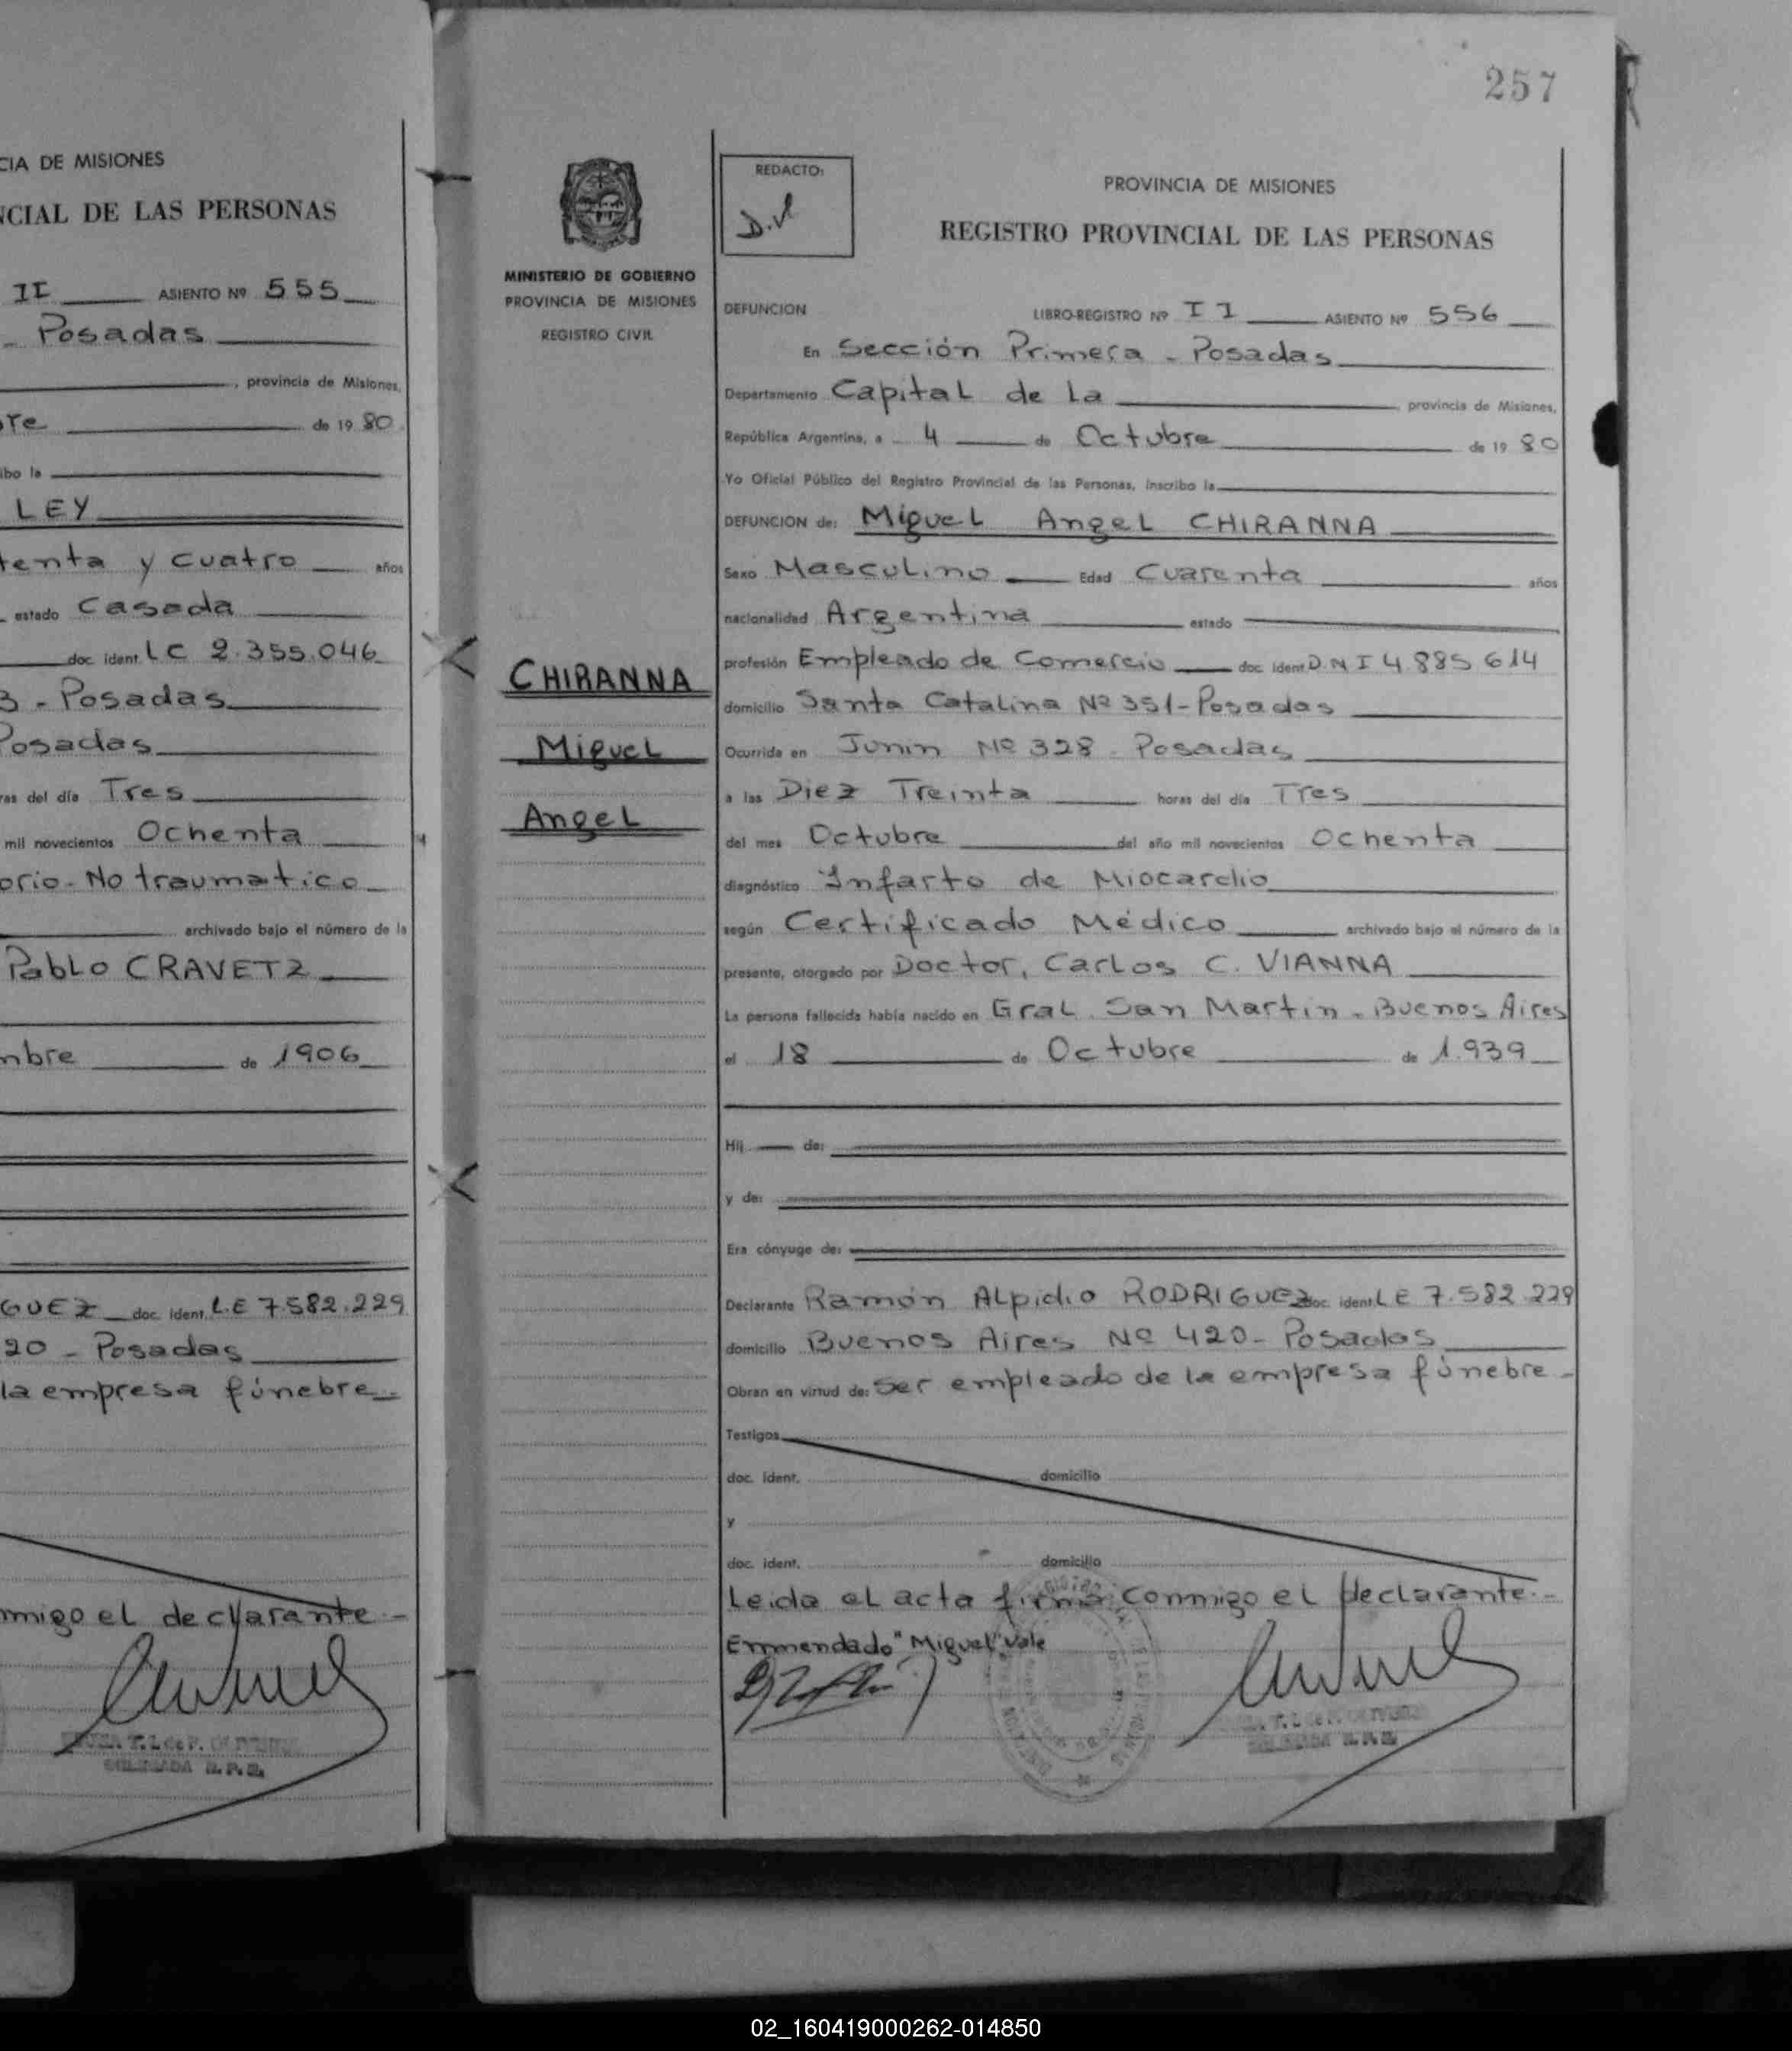 CIA DE MISIONES
NCIAL DE LAS PERSONAS
II ASIENTO Nº 555
- Posadas
, provincia de Misiones,
re de 19 80
ibo la
LEY
tenta y cuatro años
estado Casada
doc. ident. LC 2.355.046
3 - Posadas
Posadas
ras del día Tres
mil novecientos Ochenta
orio - No traumatico
archivado bajo el número de la
Pablo CRAVETZ
mbre de 1906
GUEZ doc. ident. L.E 7.582.229
20 - Posadas
la empresa fúnebre -
nmigo el declarante -
257
MINISTERIO DE GOBIERNO
PROVINCIA DE MISIONES
REGISTRO CIVIL
CHIRANNA
Miguel
Angel
REDACTO:
D.V
PROVINCIA DE MISIONES
REGISTRO PROVINCIAL DE LAS PERSONAS
DEFUNCION LIBRO-REGISTRO Nº II ASIENTO Nº 556
En Sección Primera - Posadas
Departamento Capital de La provincia de Misiones,
República Argentina, a 4 de Octubre de 19 80
Yo Oficial Público del Registro Provincial de las Personas, inscribo la
DEFUNCION de: Miguel Angel CHIRANNA
Sexo Masculino Edad Cuarenta años
nacionalidad Argentina estado
profesión Empleado de Comercio doc. ident. D.N I 4.885 614
domicilio Santa Catalina Nº 351 - Posadas
Ocurrida en Junin Nº 328 - Posadas
a las Diez Treinta horas del día Tres
del mes Octubre del año mil novecientos Ochenta
diagnóstico Infarto de Miocardio
según Certificado Médico archivado bajo el número de la
presente, otorgado por Doctor, Carlos C. VIANNA
La persona fallecida había nacido en Gral. San Martin - Buenos Aires
el 18 de Octubre de 1.939
Hij de:
y de:
Era cónyuge de:
Declarante Ramón Alpidio RODRIGUEZ doc. ident. L E 7.582.229
domicilio Buenos Aires Nº 420 - Posadas
Obran en virtud de: Ser empleado de la empresa fúnebre -
Testigos
doc. ident. domicilio
y
doc. ident. domicilio
Leida el acta firma conmigo el declarante. -
Emmendado "Miguel" Vale
02_160419000262-014850